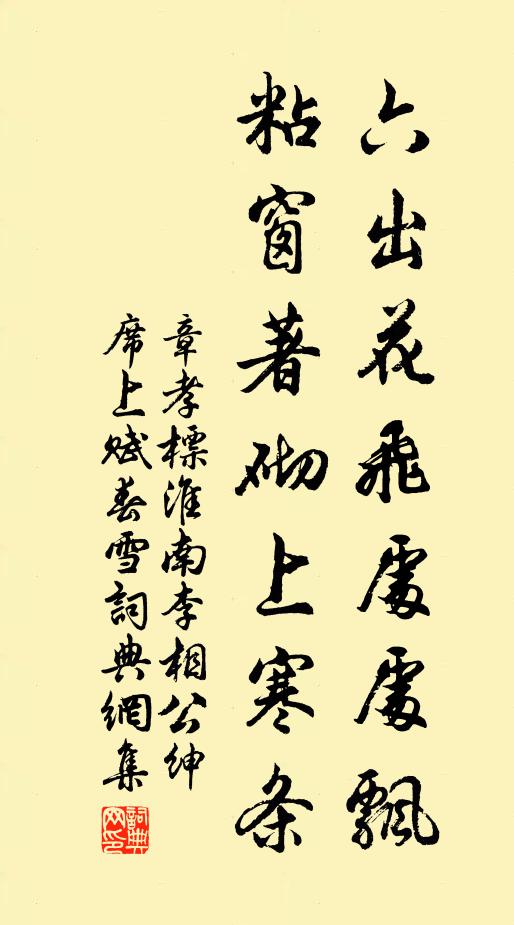 六出花飛處處飄
粘窗著砌上寒条
章孝標淮南李相公紳
席上賦春雪詞典網集
詞典
网印